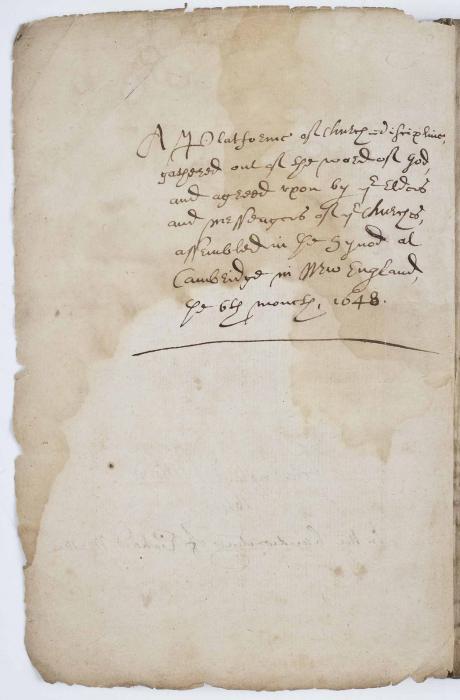 A Platforme of church-discipline,
gathered out of the word of God,
and agreed vpon by yᵉ Elders
and messengers of yᵉ churches,
assembled in the Synod at
Cambridge in New England,
the 6th month, 1648.